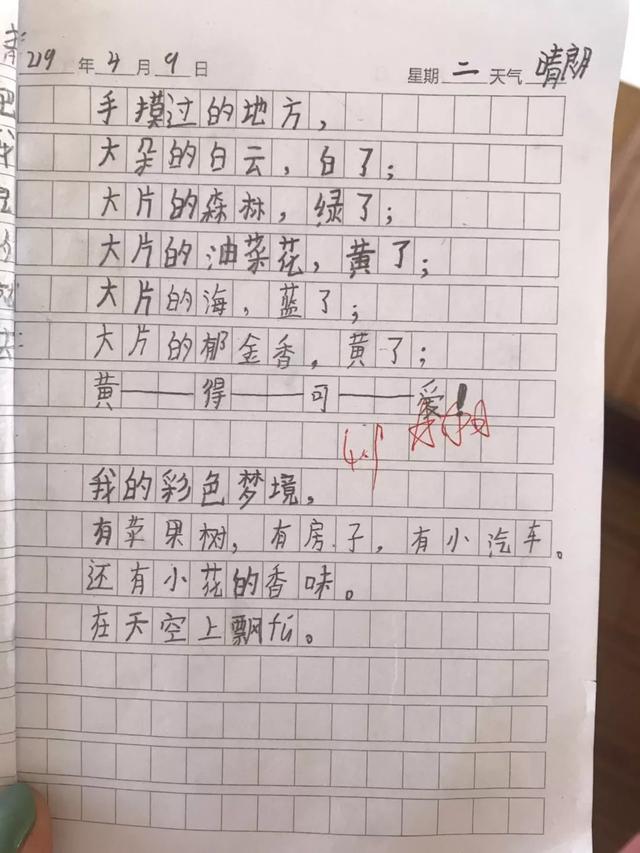 219年4月9日 星期二天气晴朗
手摸过的地方，
大朵的白云，白了；
大片的森林，绿了；
大片的油菜花，黄了；
大片的海，蓝了；
大片的郁金香，黄了；
黄——得——可——爱！
我的彩色梦境，
有苹果树，有房子，有小汽车。
还有小花的香味。
在天空上飘fú。